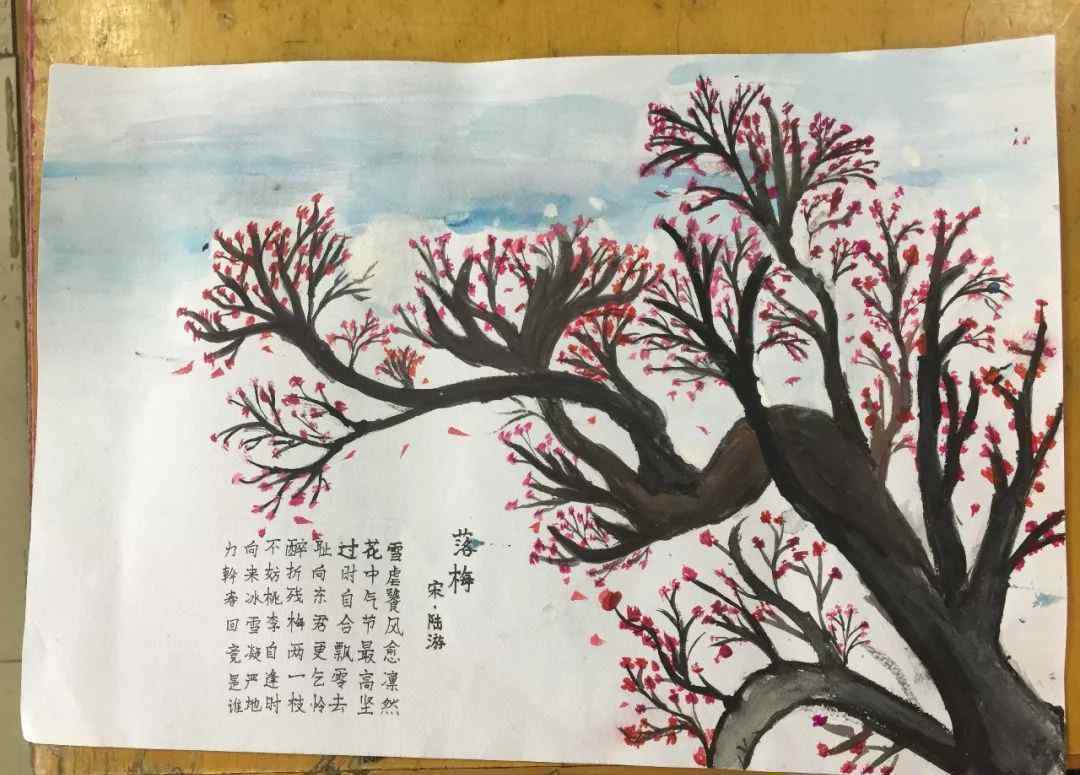 落梅
宋·陆游
雪虐饕风愈凛然
花中气节最高坚
过时自合飘零去
耻向东君更乞怜
醉折残梅两一枝
不妨桃李自逢时
向来冰雪凝严地
力斡春回竟是谁